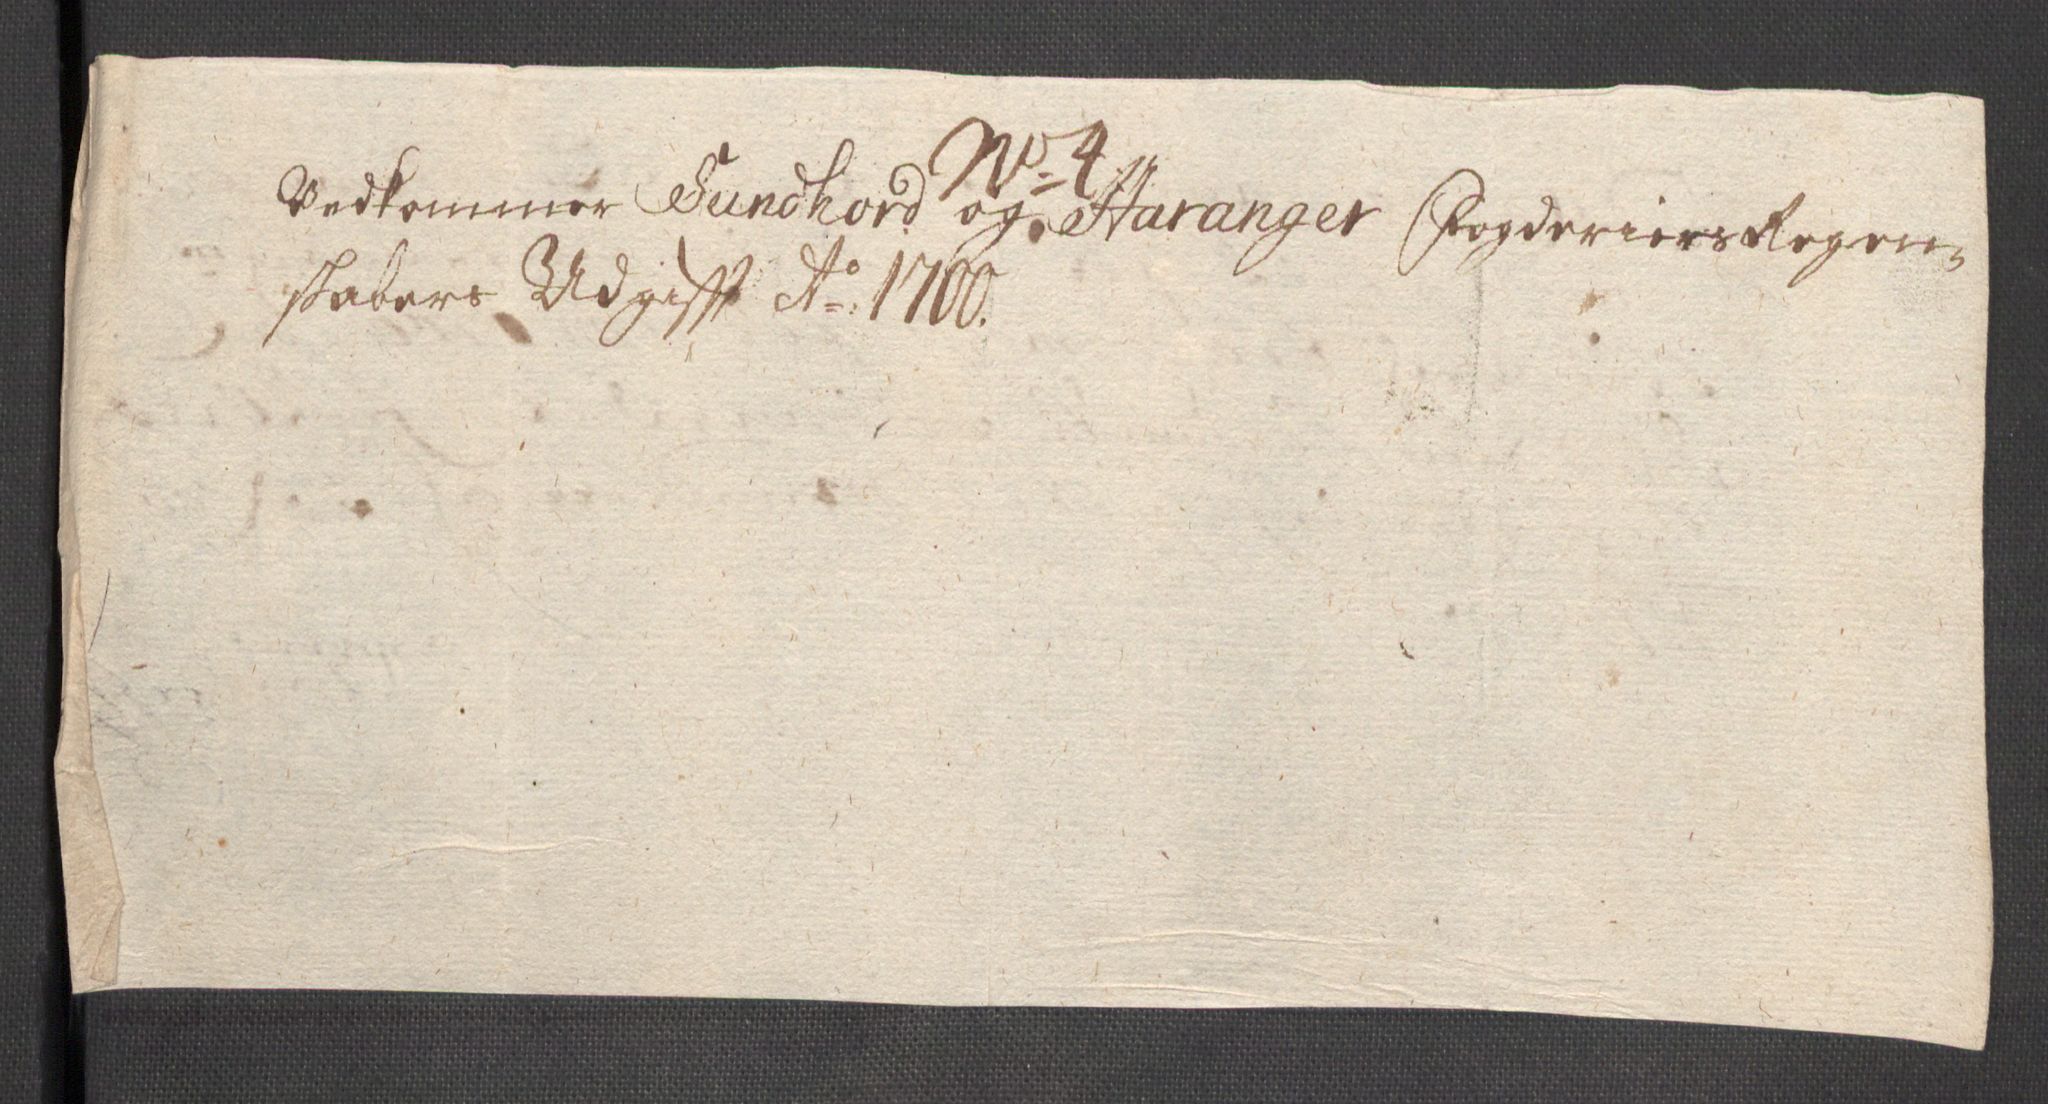 No 4
Vedkommer Sundhord og Haranger Fogderiers Regen,
skabers Udgifft Ao: 1700.